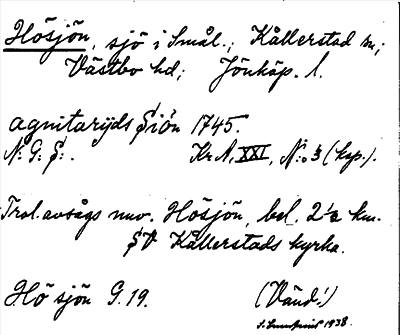 Hösjön, sjö i Smål.; Kållerstad sn;
Västbo hd; Jönköp. l.
agnitarijds Siön 1745.
N: G: S:. Kr. A, XXI, N:o 3 (kop.).
Trol. avságs nuv. Hösjön, bel. 2½ km.
SV Kållerstads kyrka.
Hö sjön G. 19. (Vänd!)
1938.